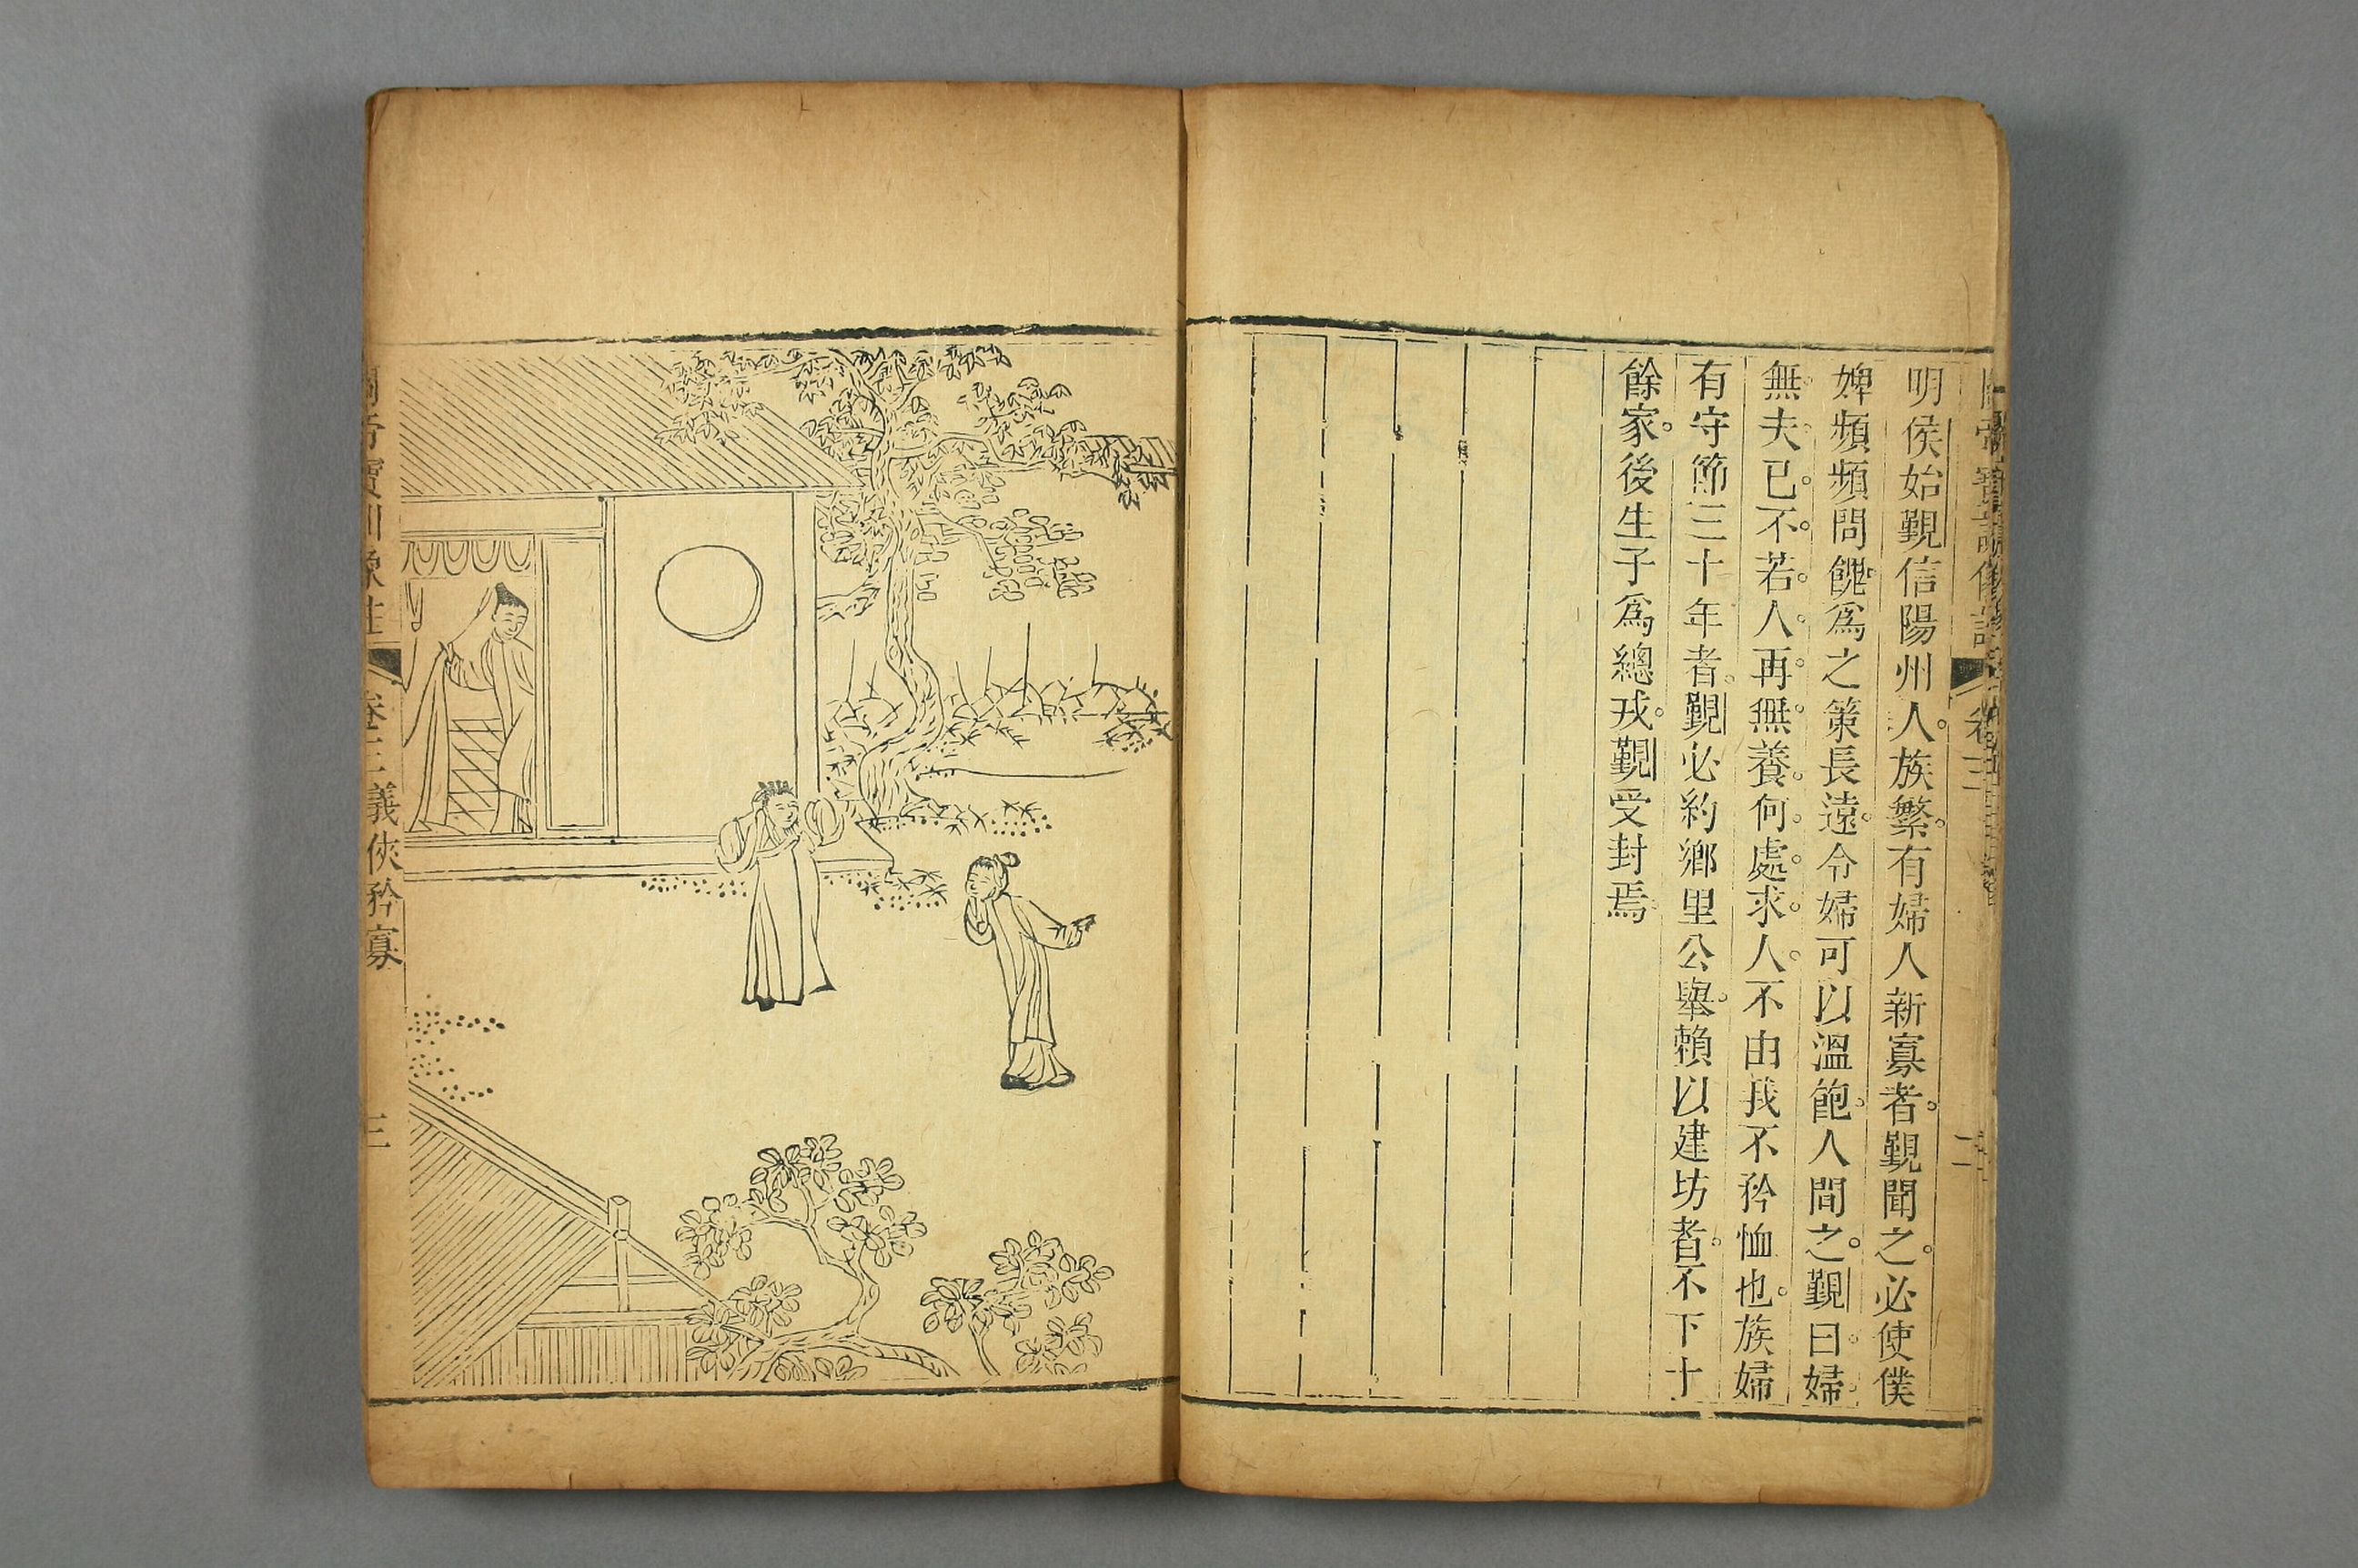 明侯始覲信陽州人族繁有婦人新寡者覲聞之必使僕
婢頻頻問餽爲之策長遠令婦可以溫飽人間之覲曰婦
無夫已不若人再無養何處求人不由我不矜恤也族婦
有守節三十年者覲必約鄉里公舉賴以建坊者不下十
餘家後生子爲總戎覲受封焉
卷三
二
卷三 義俠矜寡
三